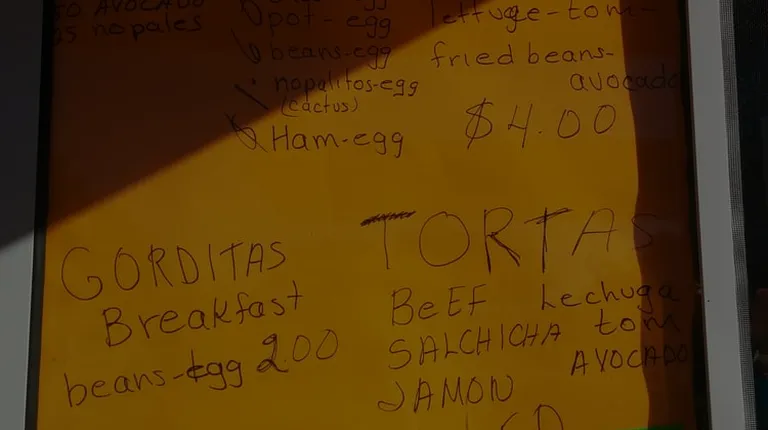 TO AVOCADO
as nopales
pot-egg
beans-egg
nopalitos-egg
(cactus)
Ham-egg
lettuge-tom-
fried beans-
avocado
$4.00
GORDITAS
Breakfast
beans-egg 2.00
TORTAS
BeEF Lechuga
SALCHICHA tom
AVOCADO
JAMON